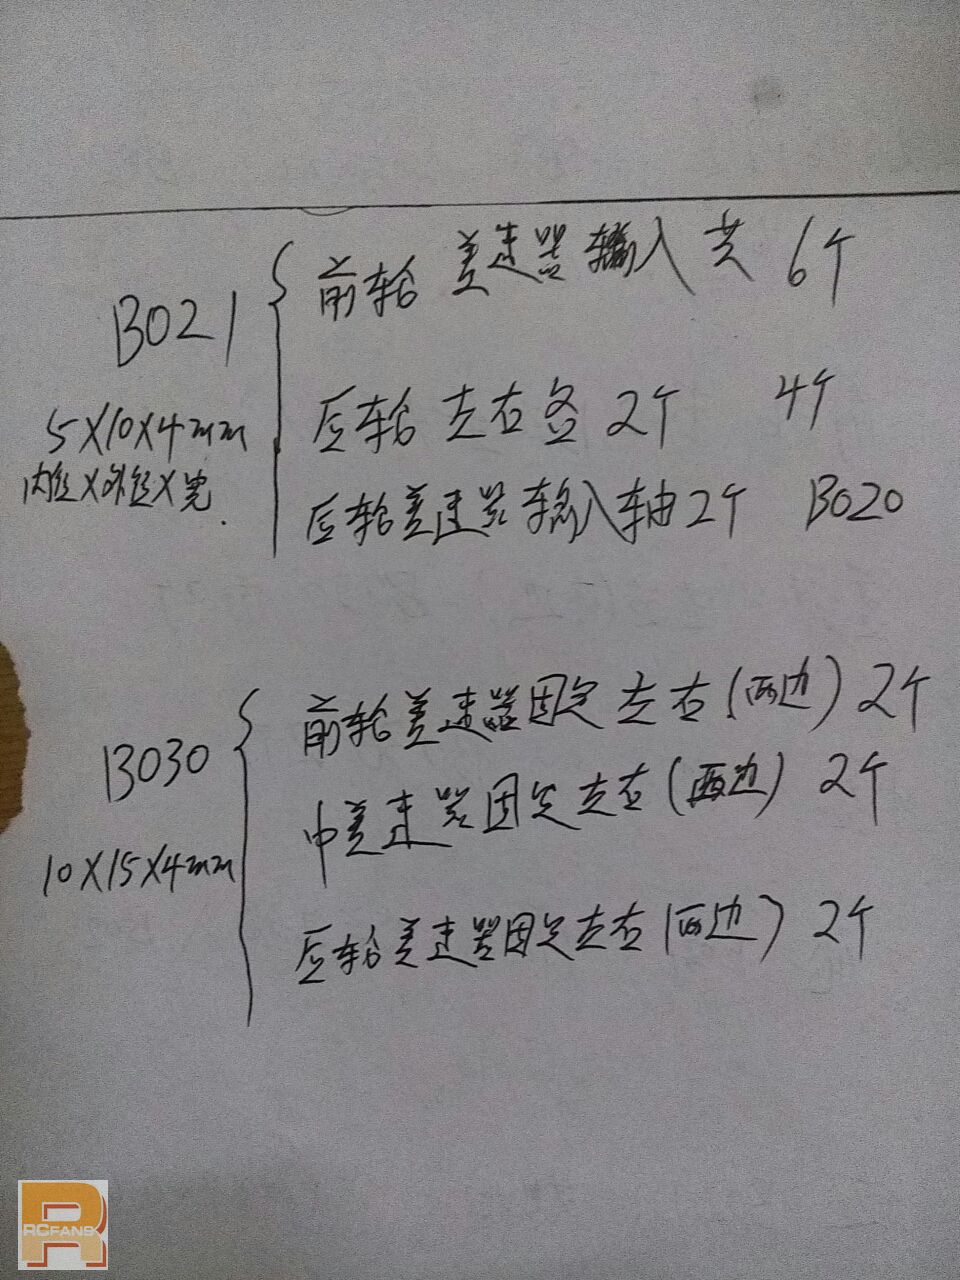 B021
5X10X4mm
内径X外径X宽.
前轮 差速器 输入 共 6个
后轮 左右各 2个 4个
后轮差速器输入轴2个 B020
B030
10X15X4mm
前轮差速器固定 左右(两边) 2个
中差速器固定左右(两边) 2个
后轮差速器固定左右(两边) 2个
RCFANS